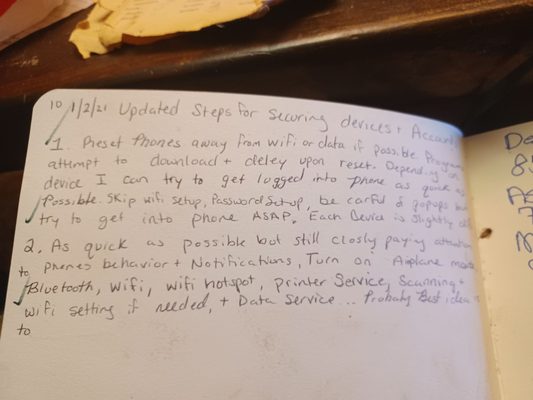 10/1/2/21 Updated Steps for securing devices + Account
1. Preset Phones away from wifi or data if possible. Program
attempt to download + deley upon reset. Depending on
device I can try to get logged into phone as quick as
Possible. Skip wifi setup, Password set-up, be carful of popups
try to get into phone ASAP. Each Device is slightly
2. As quick as possible but still closly paying attention
to phones behavior + Notifications, Turn on Airplane mode
Bluetooth, wifi, wifi hotspot, printer Service, Scanning +
wifi setting if needed, + Data Service... Probaly Best idea
to
De
8